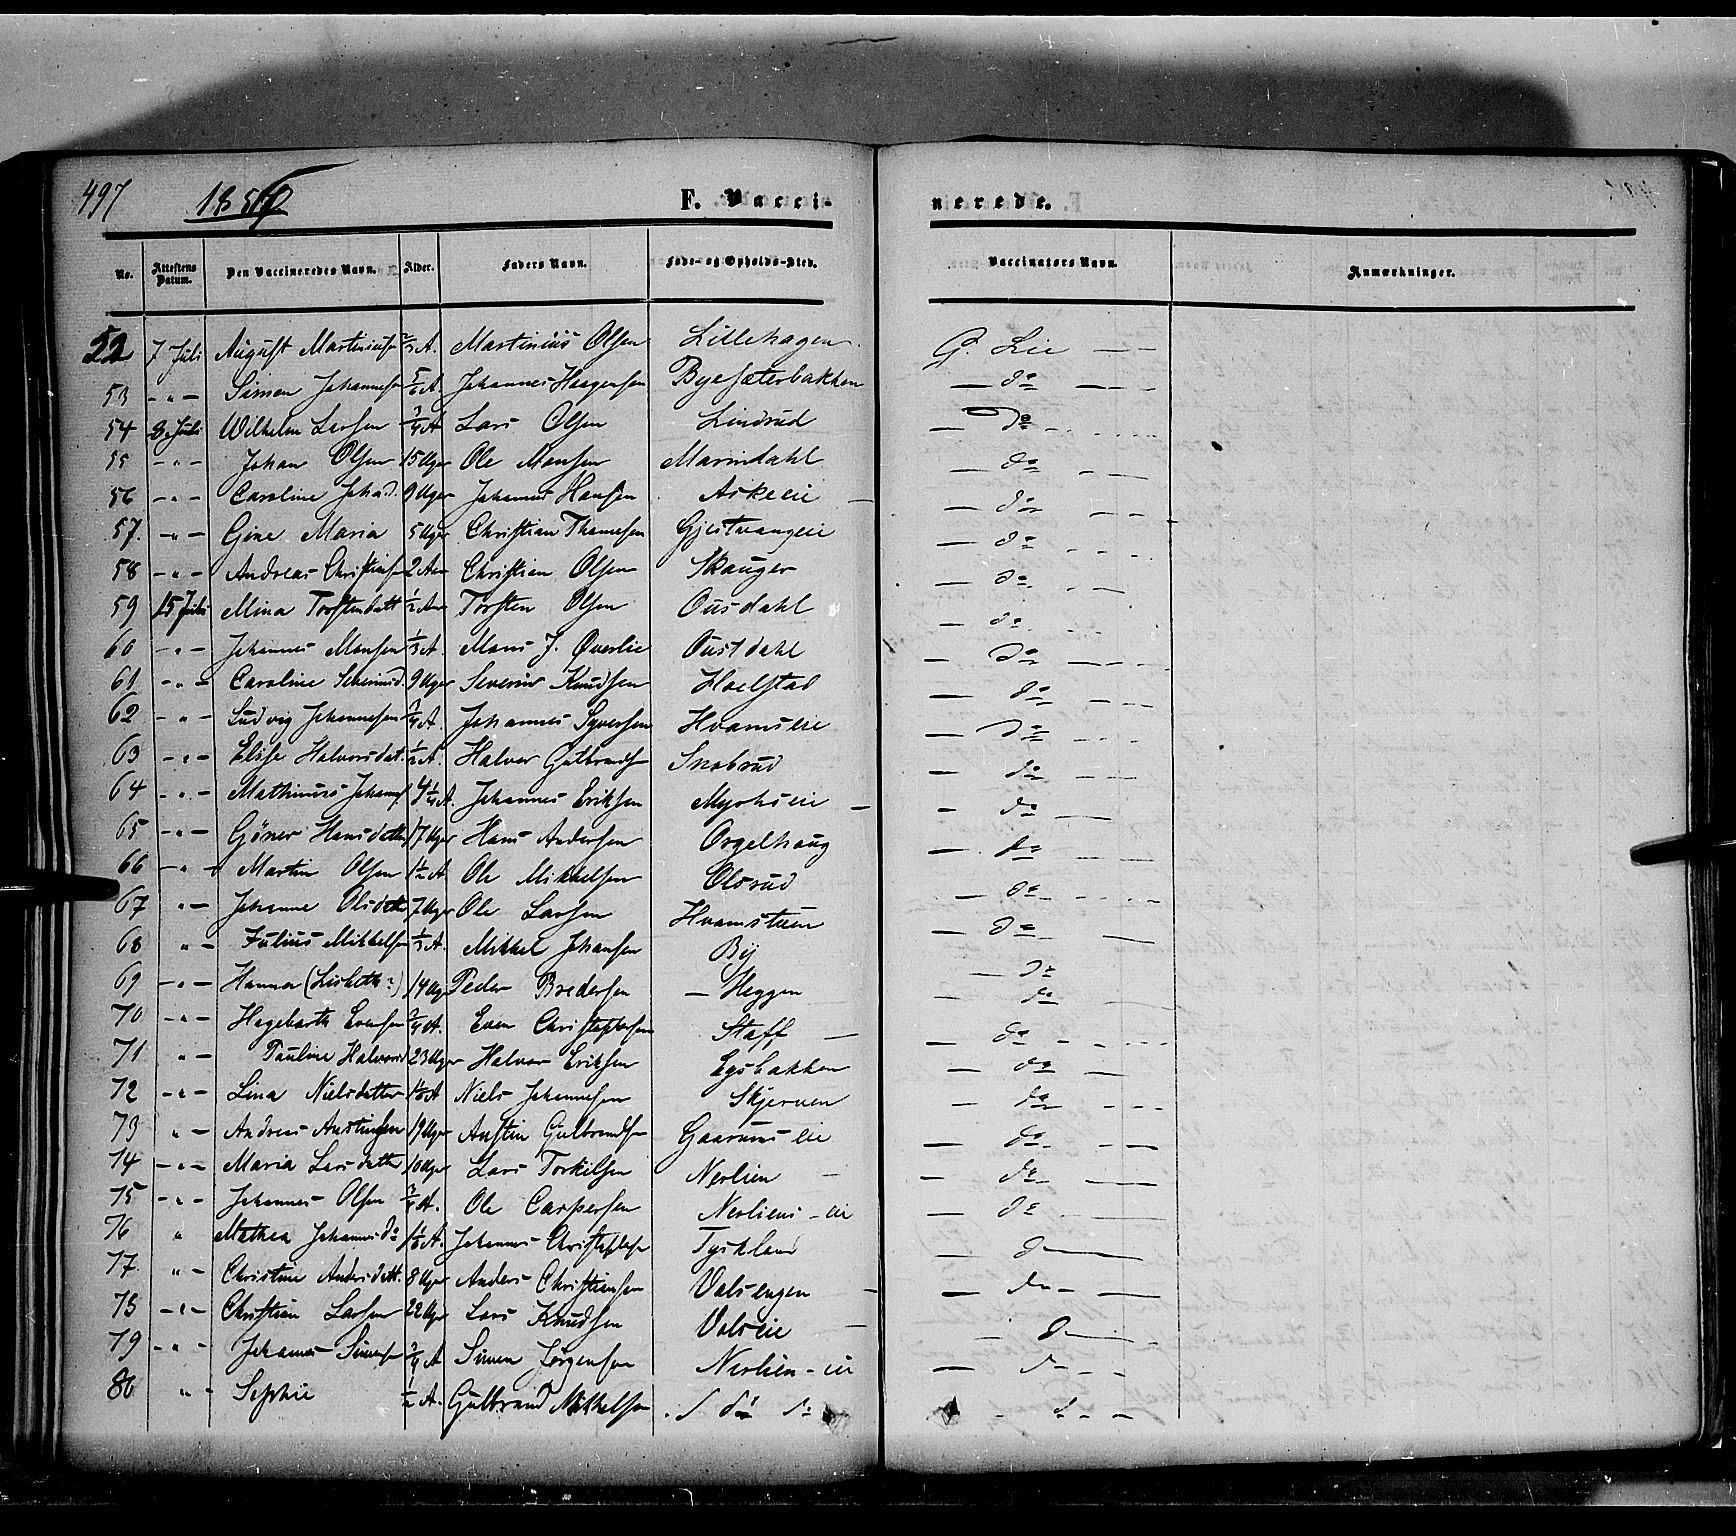 497
F. Vaccinerede.
No. Attestens Datum. Den Vaccineredes Navn. Alder. Faders Navn. Føde- og Opholds-Sted. Vaccinators Navn. Anmærkninger.
52 7 Juli August Martiniusen 2/3 A. Martinius Olsen Lillehagen G. Lie — —
53 - " - Simen Johannesen 5/6 A. Johannes Haagensen Byesæterbakken — do — — —
54 8. Juli Wilhelm Larsen 3/4 A Lars Olsen Lindrud — do
55 - " - Johan Olsen 15 Uger Ole Monsen Marindahl — do — — —
56 - " - Caroline Johd. 9 Uger Johannes Hansen Askeeie — do — —
57. - " - Gine Maria 5 Uger Christian Thamesen Gjestvangeie — do
58 - " - Andreas Christians 2 Aar Christian Olsen Skauger — do
59 15 Juli Mina Torstendatt 1/2 Aar Torsten Olsen Ousdahl — do
60 - " - Johannes Monsen 1/3 A. Mons J. Øverlie Oustdahl — do — — —
61 - " - Caroline 9 Uger Severin Knudsen Hoelstad — do
62 - " - Ludvig Johannesen 3/4 A Johannes Syversen Hvamseie — do
63 - " - Elise Halvorsdat. 1/2 A. Halvor Gulbrands Snobrud — do — — —
64 - " - Mathinus Johans 4 1/4 A. Johannes Eriksen Myrhseie — do
65 - " - Gjöner Hansdatter 17 Uger Hans Andersen Orgelhaug — do
66 - " - Martin Olsen 1 1/2 A Ole Mikkelsen Olsrud — do
67 " - Johanne Olsdatt 7 Uger Ole Larsen Hvamstuen — do
68 " - Julius Mikkelsen 1/3 A. Mikkel Johansen By — do
69 - " - Hanna (Lisbeth?) 14 Uger Peder Bredesen — Heggen — do
70 - " - Hagebarth Evensen 3/4 A. Even Christophersen Staff — do
71 " - Pauline Halvord 23 Uger Halvor Eriksen Egsbakken — do
72 - " - Lina Nielsdatter A Niels Johannesen Skjerven — do
73 " - Andreas Austinsen 19 Uger Austin Gulbrands Gaarunseie — do
74 - " - Maria Larsdatter 10 Uger Lars Torkelsen Nerlien — do
75 - " - Johannes Olsen 3/4 A. Ole Caspersen Nerliens - eie — do
76 " Mathea Johannesd A. Johannes Christophs Tyskland — do
77 " - Christine Andersdatt. 8 Uger Anders Christiansen Valsengen — do
78 - " - Christian Larsen 22 Uger Lars Knudsen Valseie — do
79 - " - Johannes Simens 3/4 A Simen Jørgensen Nerlien - eie — do
80 " - Sophie 1/2 A. Gulbrand Mikkelsen do do — do